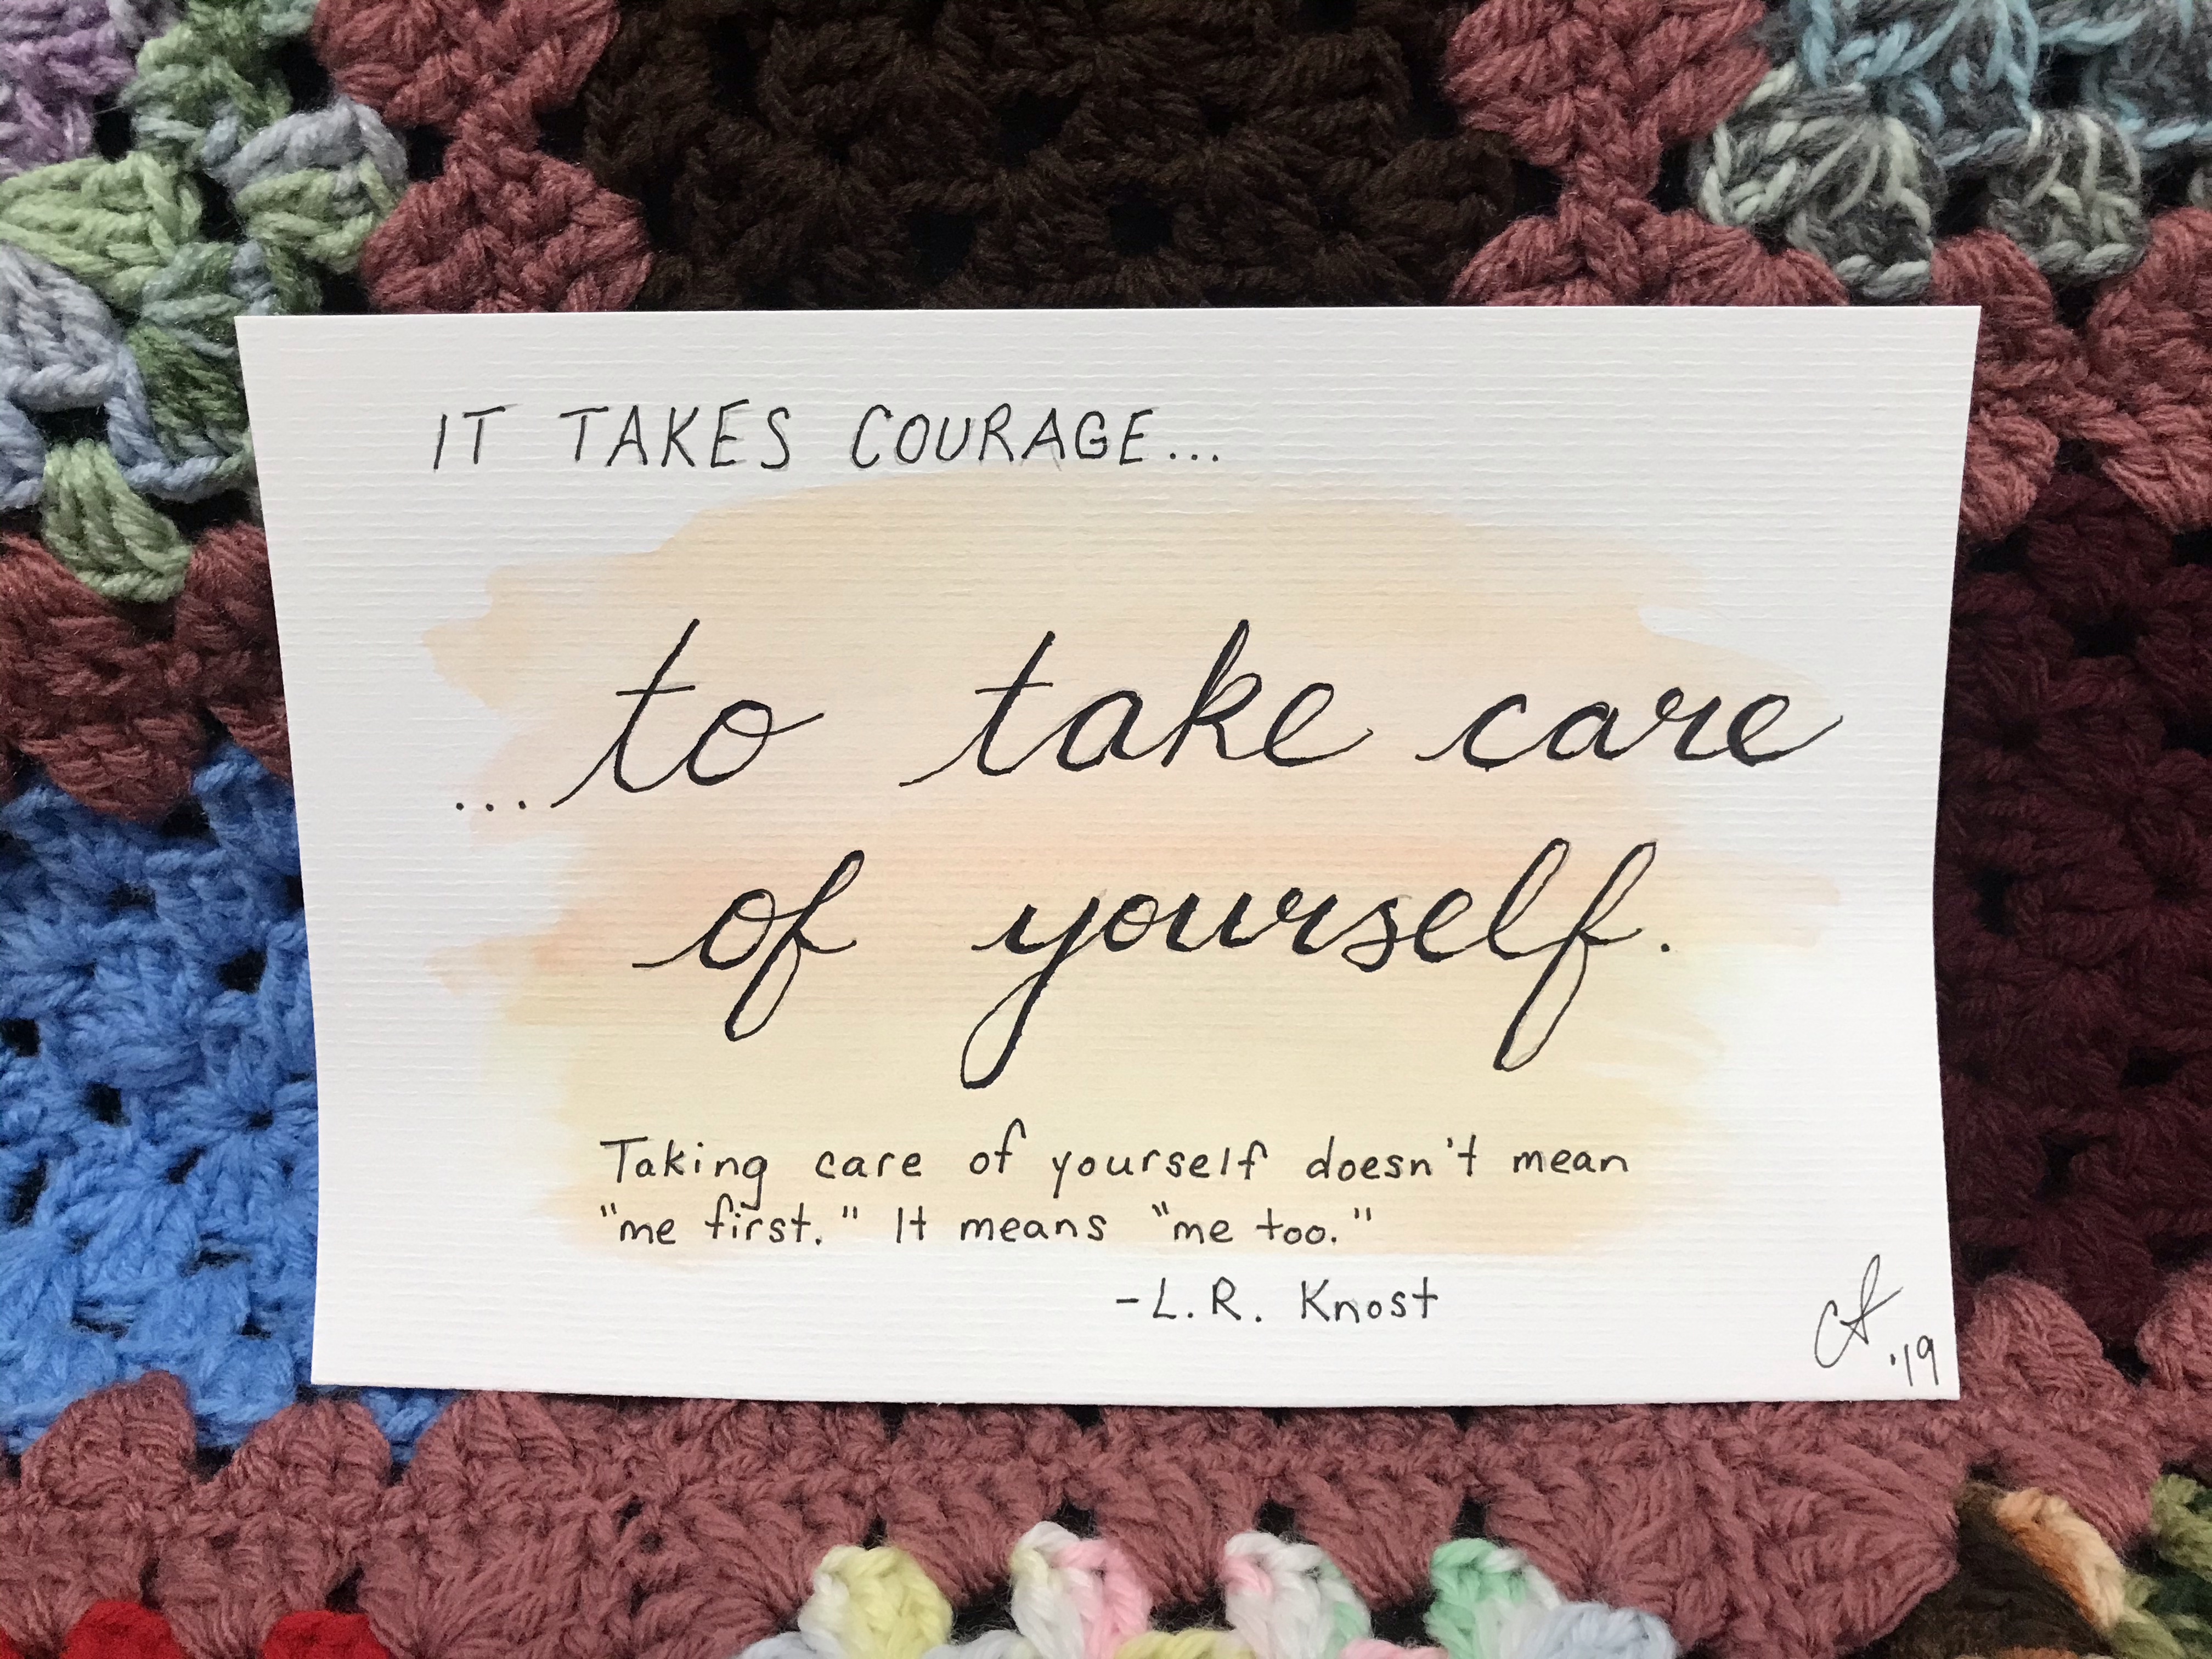 IT TAKES COURAGE...
...to take care
of yourself.
Taking care of yourself doesn't mean
"me first." It means "me too."
-L.R. Knost
'19